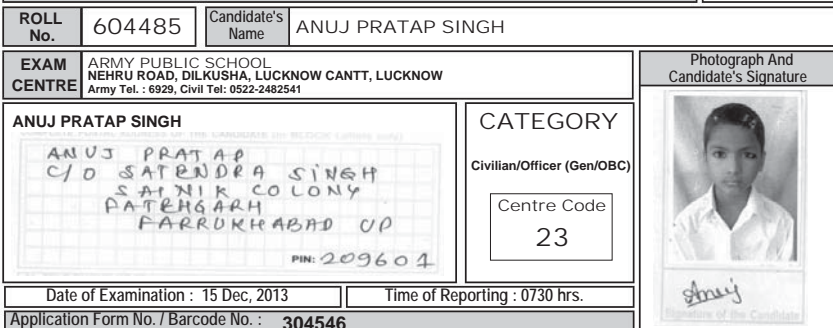 ROLL No. 604485 Candidate's Name ANUJ PRATAP SINGH
EXAM CENTRE
ARMY PUBLIC SCHOOL
NEHRU ROAD, DILKUSHA, LUCKNOW CANTT, LUCKNOW
Army Tel. : 6929, Civil Tel: 0522-2482541
Photograph And
Candidate's Signature
ANUJ PRATAP SINGH
COMPLETE POSTAL ADDRESS OF THE CANDIDATE (in BLOCK Letters only)
ANUJ PRATAP
C/O SATENDRA SINGH
SAINIK COLONY
FATEHGARH
FARRUKHABAD UP
PIN: 209601
CATEGORY
Civilian/Officer (Gen/OBC)
Centre Code
23
Anuj
Signature of the Candidate
Date of Examination : 15 Dec, 2013 Time of Reporting : 0730 hrs.
Application Form No. / Barcode No. : 304546